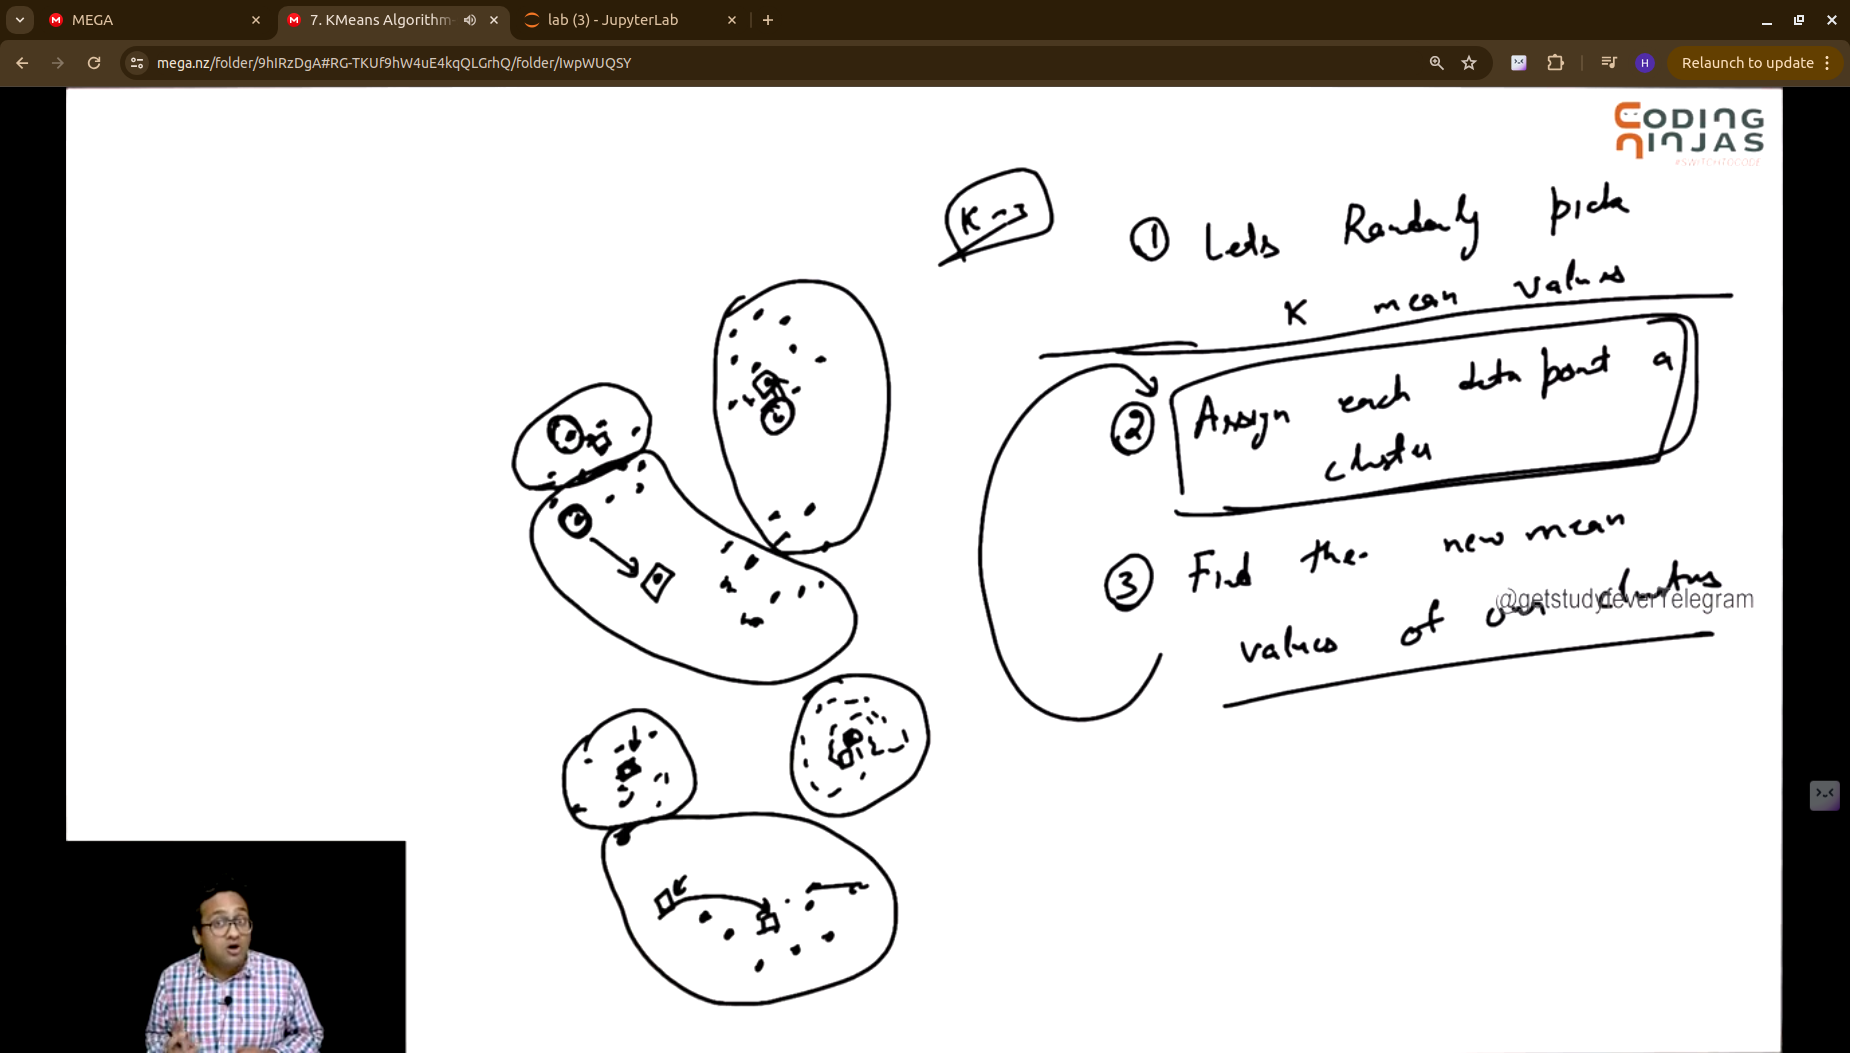 MEGA
7. KMeans Algorithm-
lab (3) - JupyterLab
mega.nz/folder/9hIRzDgA#RG-TKUf9hW4uE4kqQLGrhQ/folder/IwpWUQSY
H
Relaunch to update
CODING
NINJAS
#SWITCHTOCODE
K=3
1 Lets Randomly pick
K mean values
2 Assign each data point a
cluster
3 Find the new mean
values of our clusters
@getstudyfeverTelegram